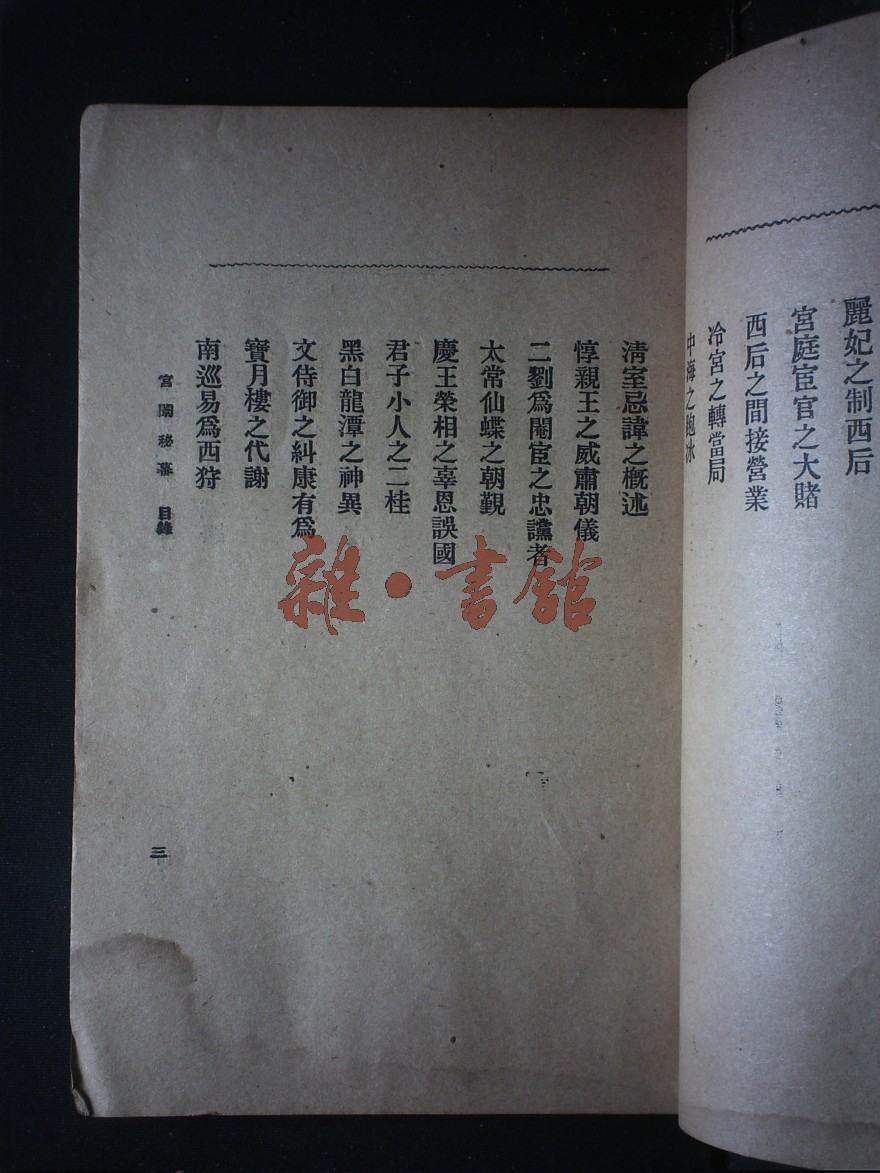 麗妃之制西后
宮庭宦官之大賭
西后之間接營業
冷宮之轉當局
中海之跑冰
清室忌諱之概述
惇親王之威肅朝儀
二劉爲閹宦之忠讜者
太常仙蝶之朝觀
慶王榮相之辜恩誤國
君子小人之二桂
黑白龍潭之神異
文侍御之糾康有爲
寶月樓之代謝
南巡易爲西狩
宮闈秘幕 目錄
三
雜·書館